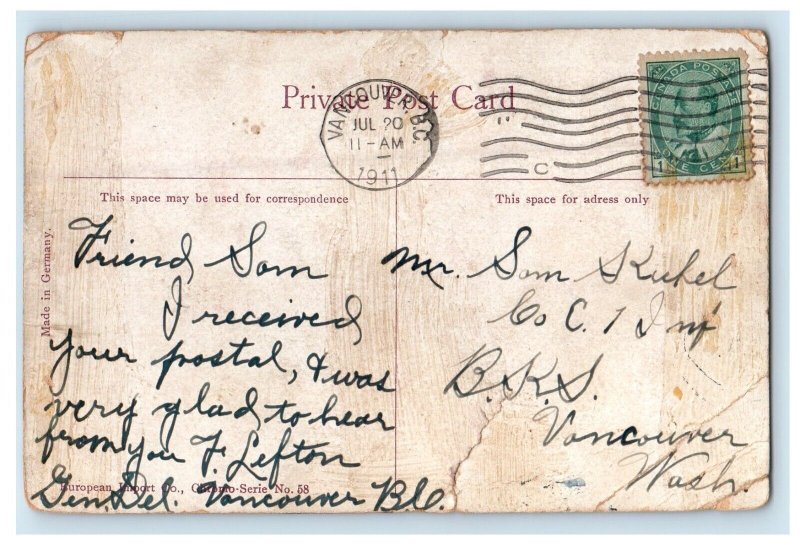 Private Post Card
VANCOUVER, B.C.
JUL 20
11-AM
1911
C
CANADA POSTAGE
1 ONE CENT 1
This space may be used for correspondence
This space for adress only
Made in Germany.
Friend Sam
I received
your postal, & was
very glad to hear
from you F. Lefton
Gen. Del. Vancouver B.C.
European Import Co., Chromo-Serie No. 58
Mr. Sam Kuhel
Co C. 1 Inf
B.K.S.
Vancouver
Wash.